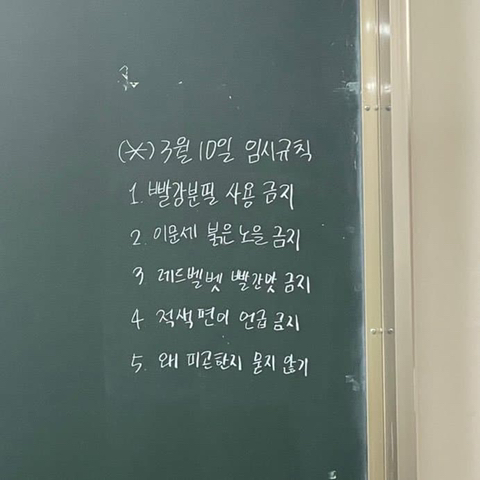 (※) 3월 10일 임시규칙
1. 빨강분필 사용 금지
2. 이문세 붉은노을 금지
3. 레드벨벳 빨간맛 금지
4 적색편이 언급 금지
5. 왜 피곤한지 묻지 않기